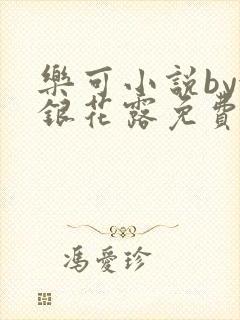 樂可小說by
銀花露免費
馮愛珍